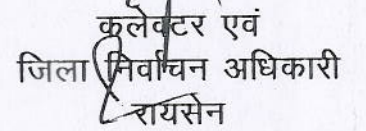 कलेक्टर एवं
जिला निर्वाचन अधिकारी
रायसेन